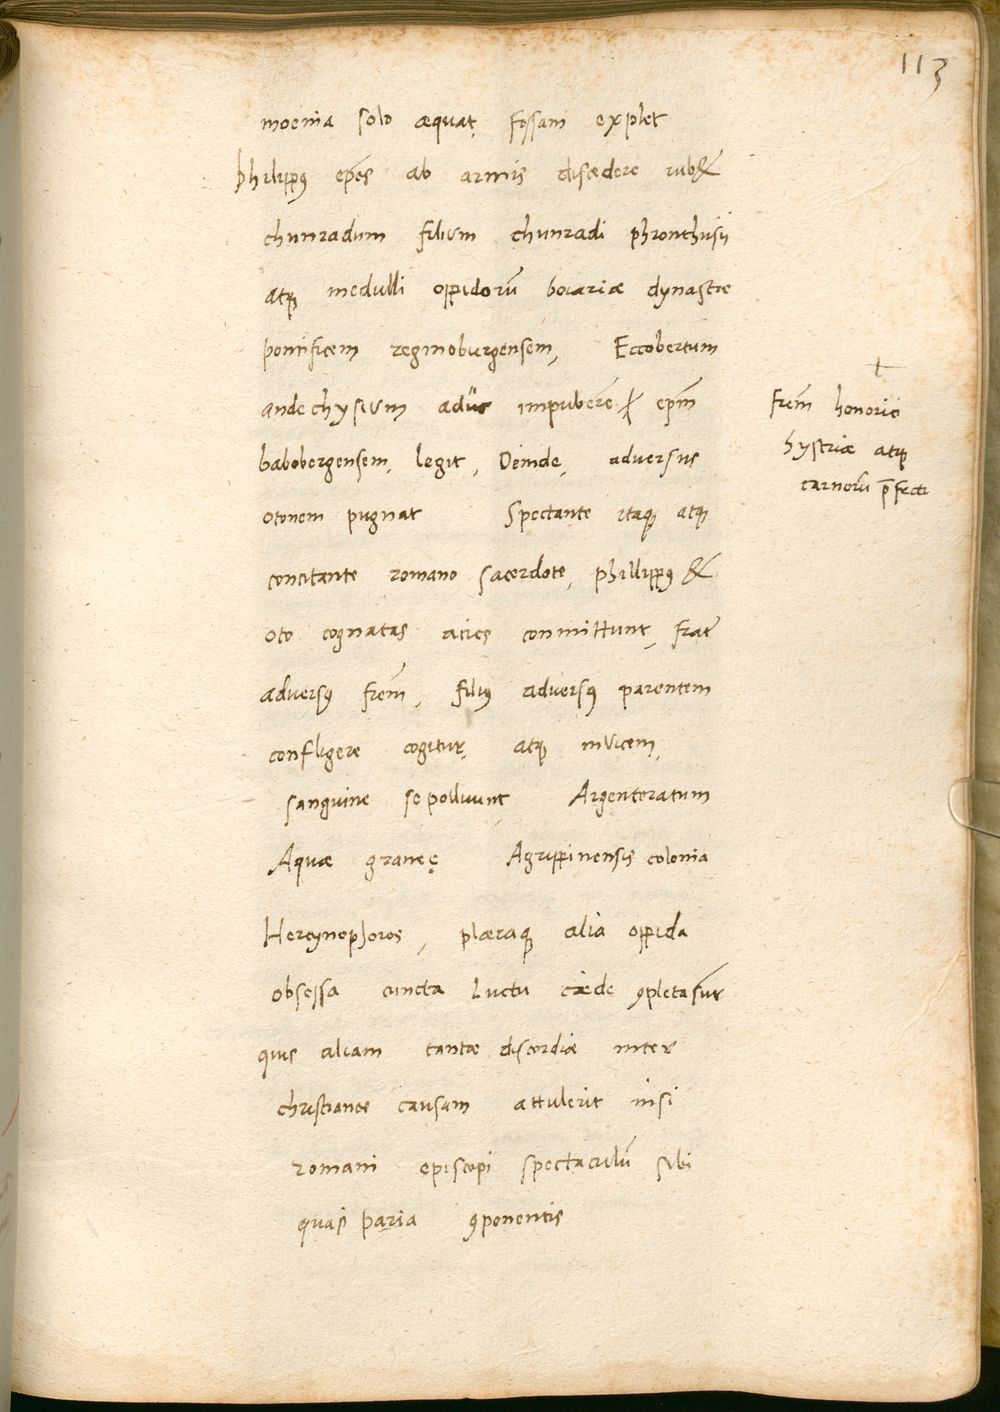 113
moenia solo æquat, fossam explet
philippꝯ ep̄os ab armis discedere iub&
chunradum filium chunradi phronthusii
atqꝫ medulli oppidorū boiariæ dynastæ
pontificem reginoburgensem, Eccobertum
andechysium adu͡c impuberē, ep̄m
babobergensem, legit, Deinde, adversus
otonem pugnat Spectante itaqꝫ atqꝫ
concitante romano sacerdote, phillippꝯ &
oto cognatas acies conmittunt, frat̄
adversꝯ fr̄em, filiꝯ adversꝯ parentem
confligere cogitur, atqꝫ invicem,
sanguine se polluunt Argentoratum
Aquæ graneę Agrippinensis colonia
Hercynophoros, plæraqꝫ alia oppida
obsessa cuncta luctu cæde ꝯpleta sūt
quis aliam tantæ discordiæ inter
christianos causam attulerit nisi
romani episcopi spectaculū sibi
quasi paria ꝯponentis
†
fr̄em honorio
hystriæ atqꝫ
carnorū p̄fecti